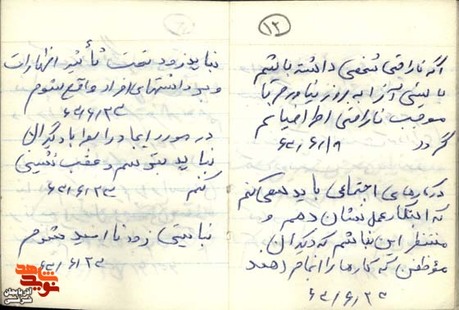 ۱۲
اگر ناراحتی شخصی داشته باشم
بایستی آنرا به روز نیاورم تا
موجب ناراحتی اطرافیانم
گردد ۶۲/۶/۱۹
در کارهای اجتماعی باید سعی کنم
که ابتکار عمل نشان دهم و
منتظر این نباشم که دیگران
مؤظفن که کارها را انجام دهند
۶۲/۶/۲۳
نباید زود تحت تأثیر اظهارات
و برداشتهای افراد واقع شوم
۶۲/۶/۲۳
در مورد ایجاد رابطه با دیگران
نباید بترسم و عقب نشینی
کنم ۶۲/۶/۲۳
نبایستی زود ناامید شوم
۶۲/۶/۲۳
نوید شاهد
آذربایجان شرقی